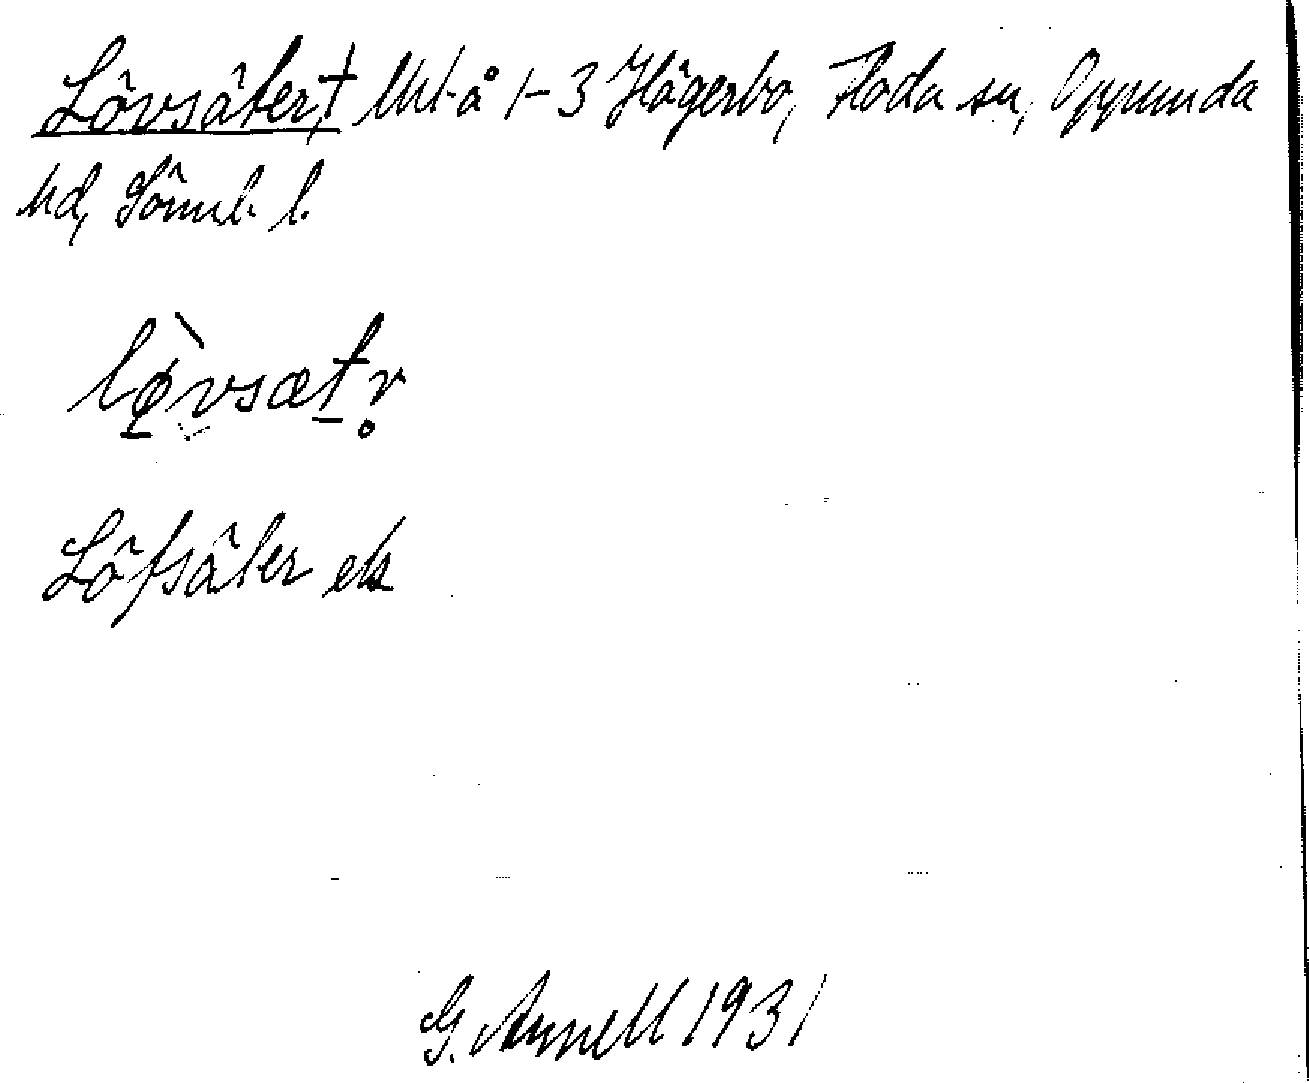 Lövsäter, † Utt å 1-3 Högerbo, Floda sn, Oppunda
hd, Söml. l.
lø̠̀vsæt̠r̥
Löfsäter ek
G. Annell 1931